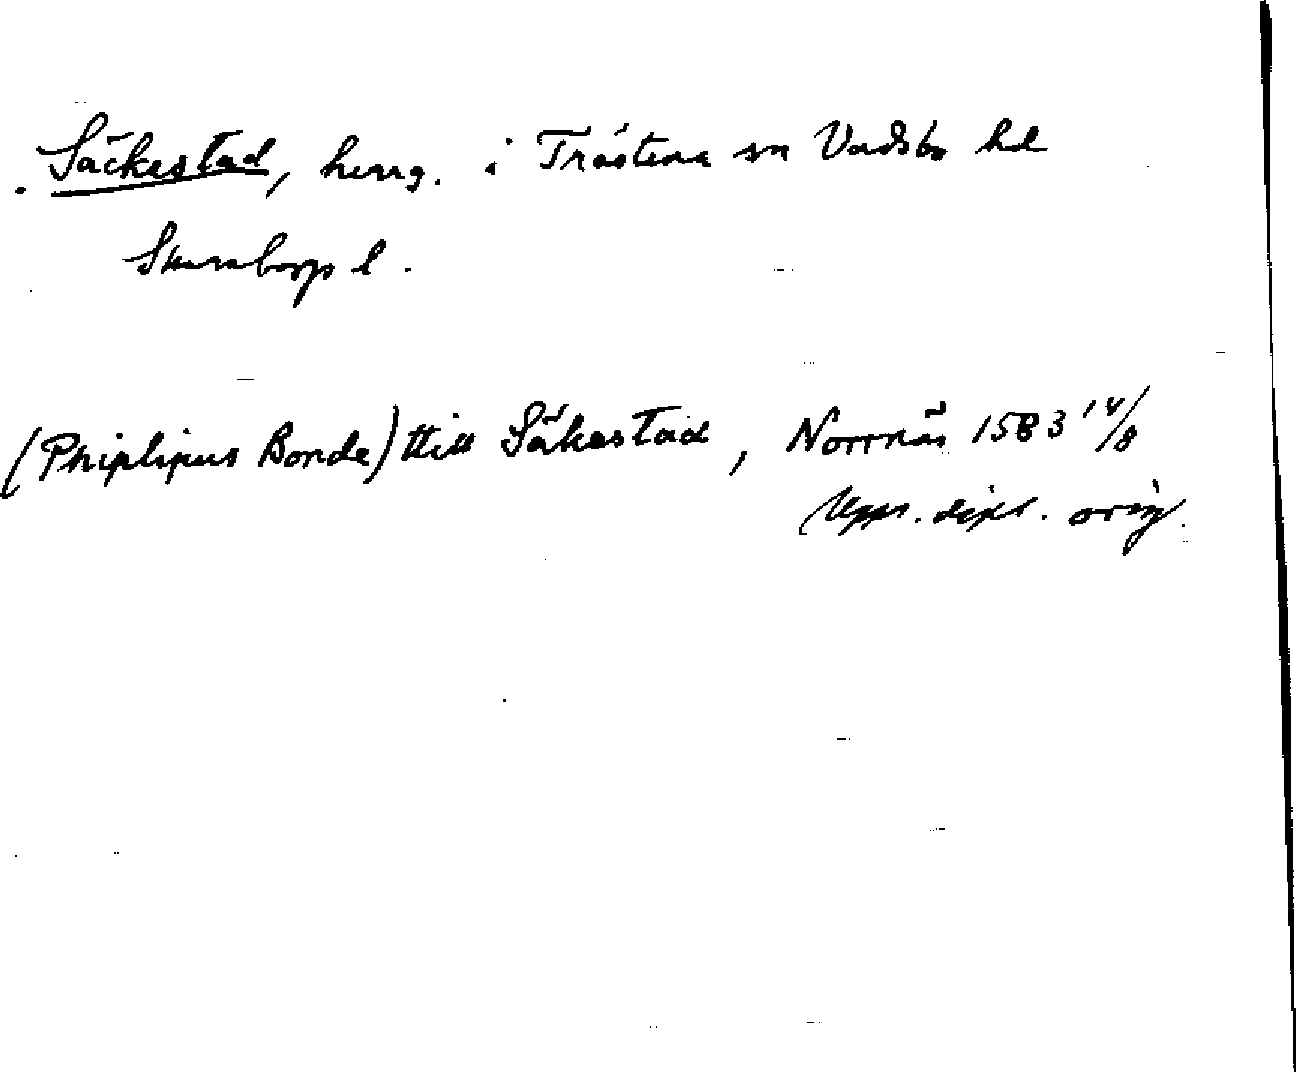 Säckestad, herrg. i Trästena sn Vadsbo hd
Skaraborgs l.
(Phiplipus Bonde) till Säkestad, Norrnäs 1583 14/8
Upps. dipl. orig.